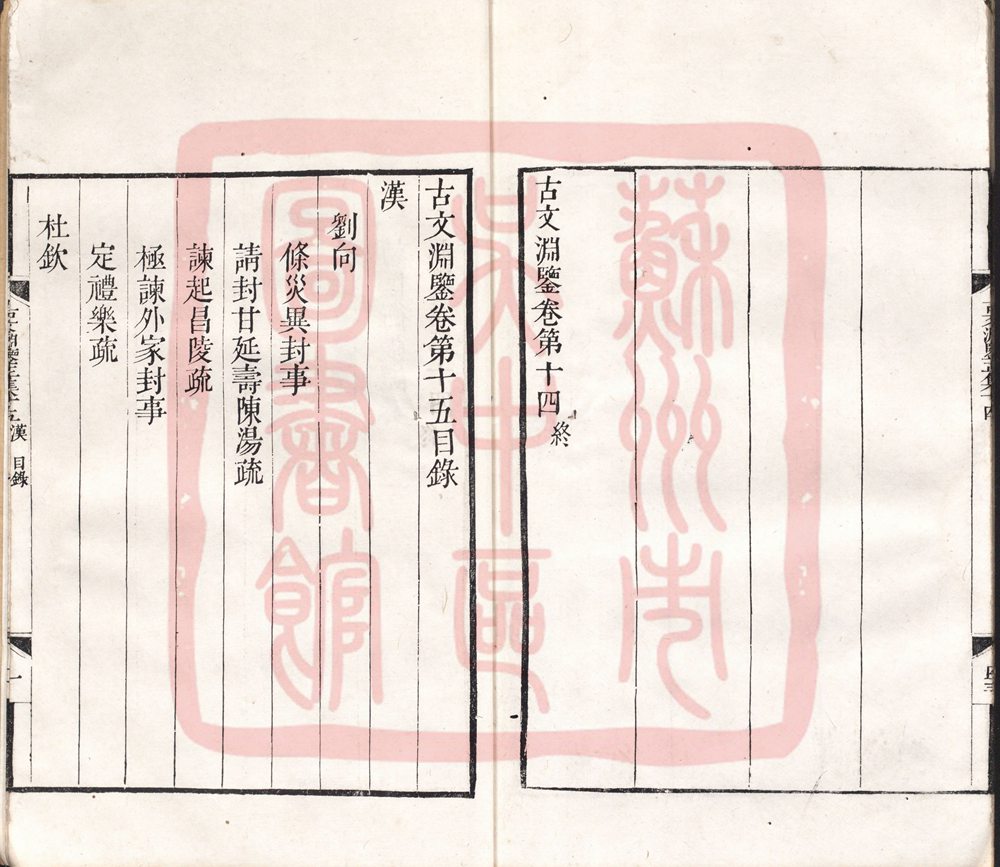 古文淵鑒卷第十四終
古文淵鑒卷第十五目錄
漢
劉向
條災異封事
請封甘延壽陳湯疏
諫起昌陵疏
極諫外家封事
定禮樂疏
杜欽
漢 目錄
一
蘇州市
吳中區
圖書館